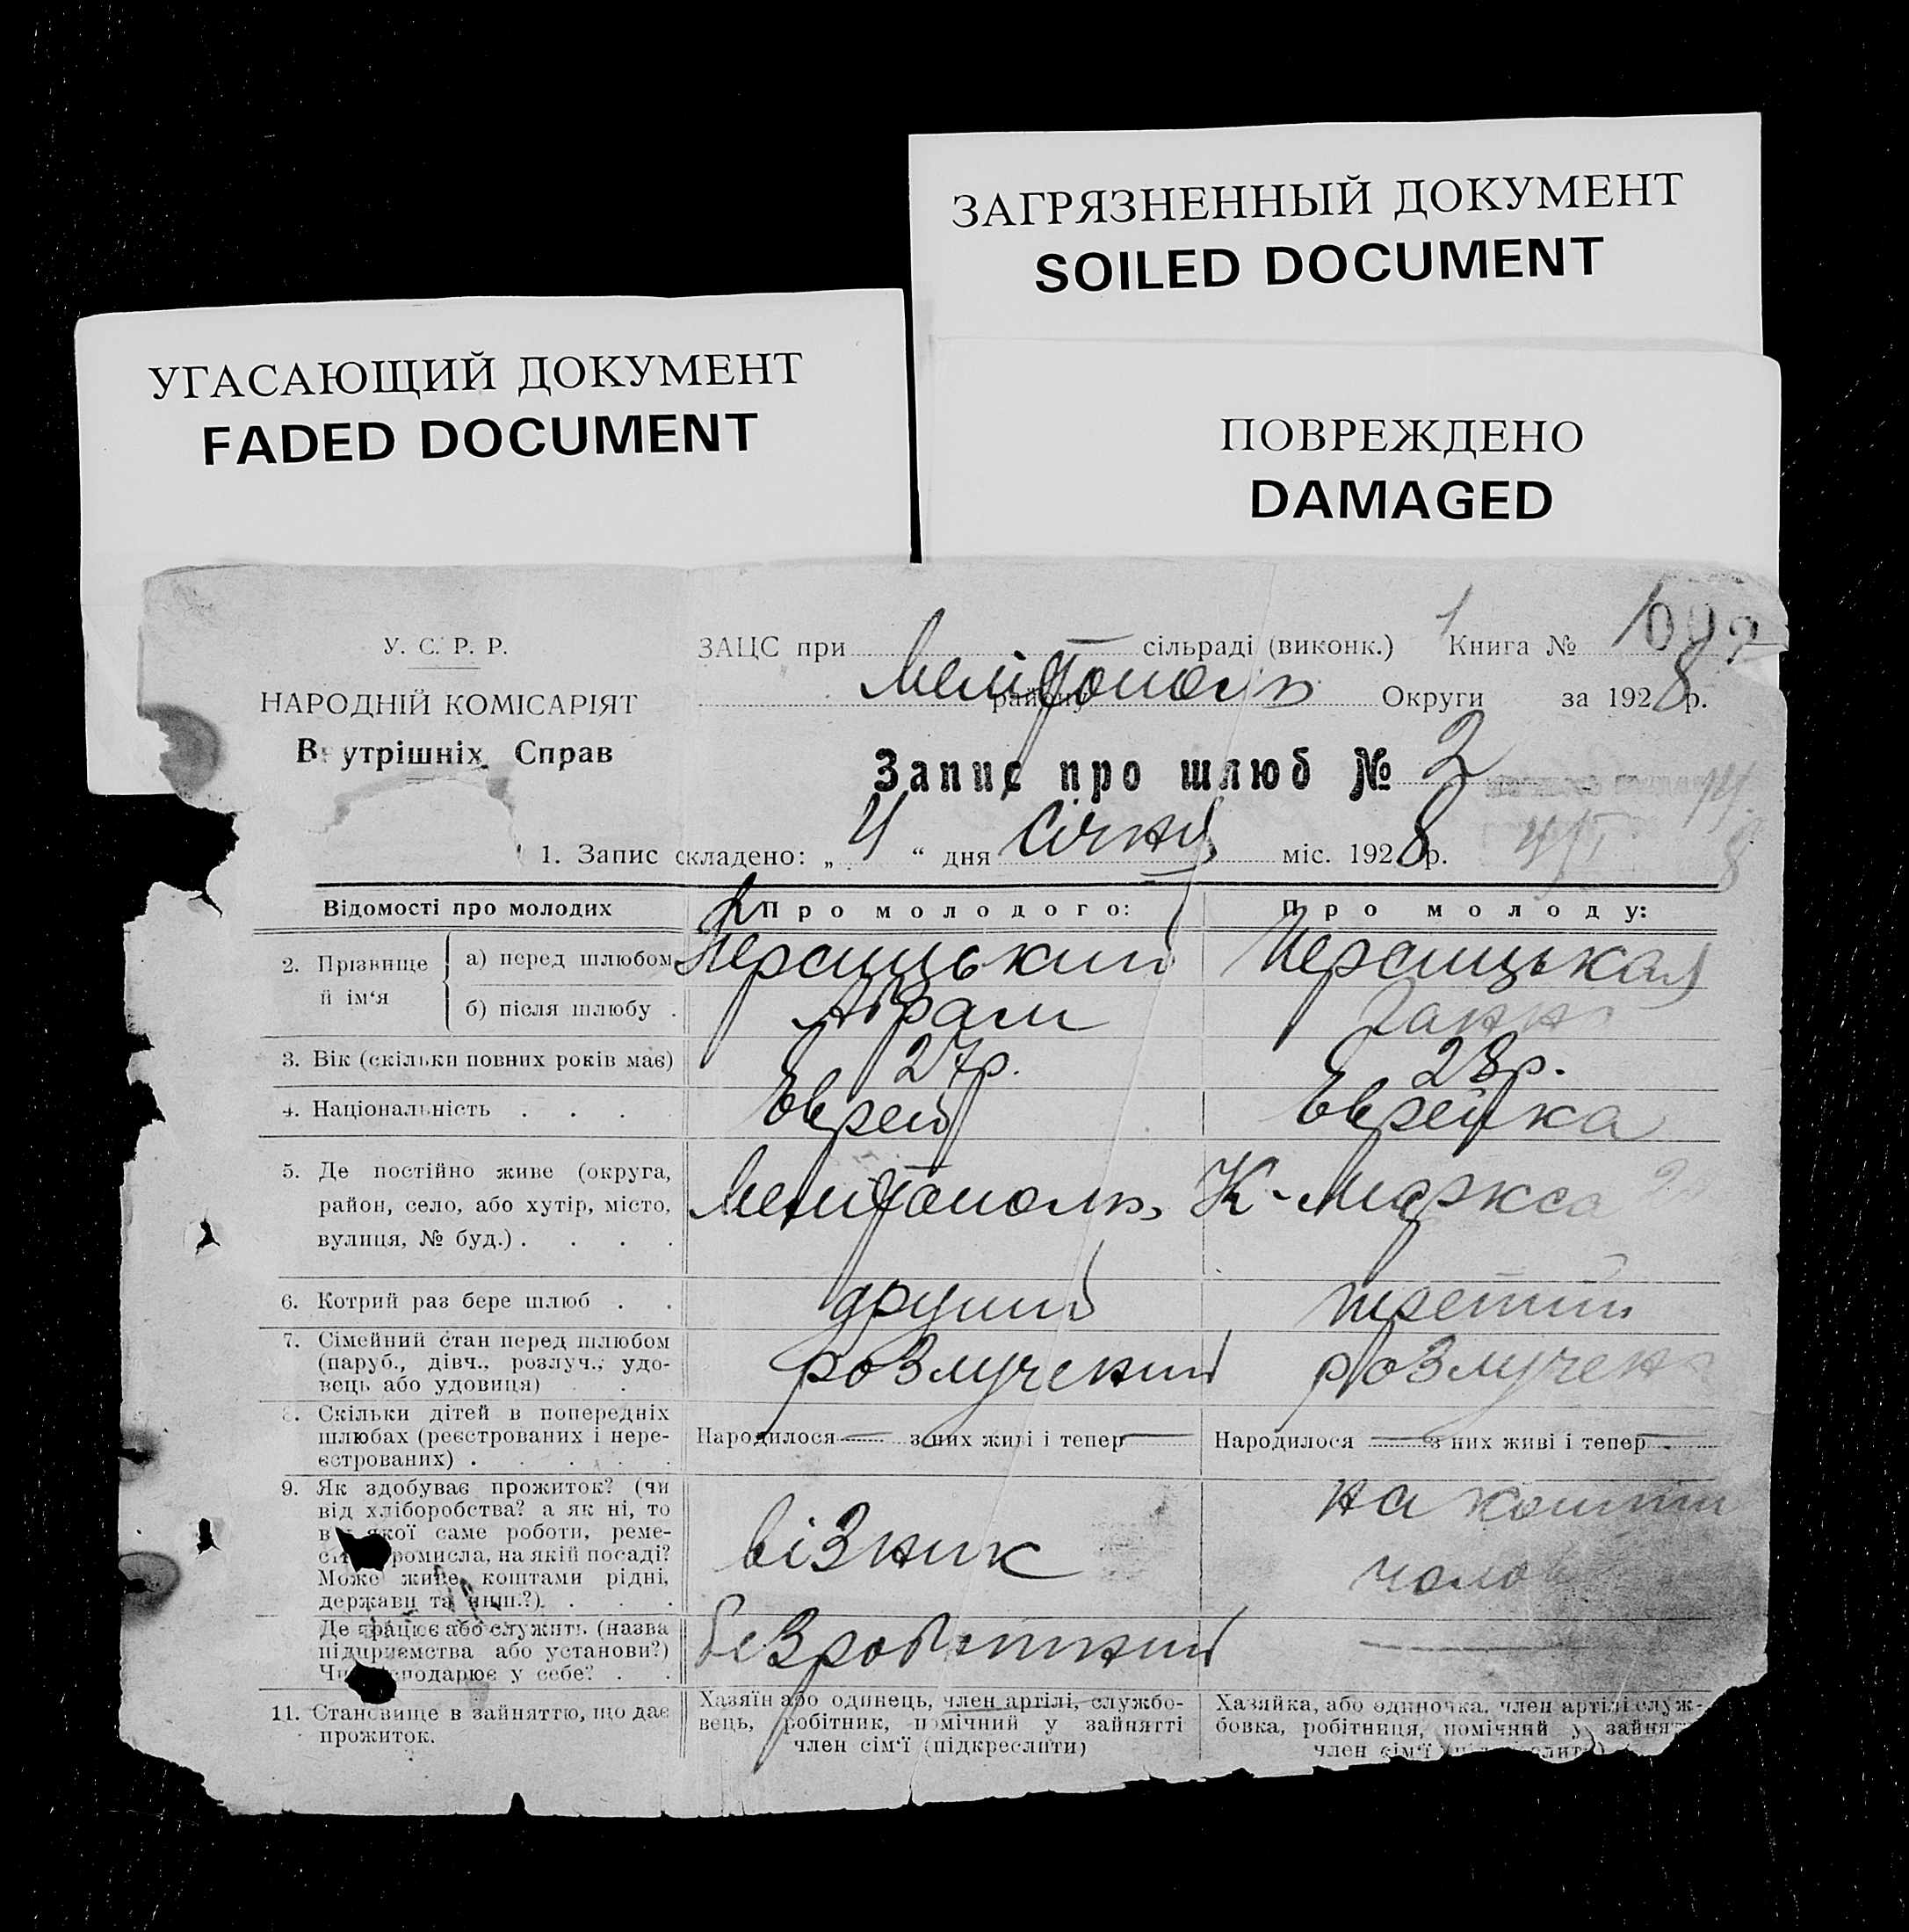 ЗАГРЯЗНЕННЫЙ ДОКУМЕНТ
SOILED DOCUMENT
УГАСАЮЩИЙ ДОКУМЕНТ
FADED DOCUMENT
ПОВРЕЖДЕНО
DAMAGED
У. С. Р. Р.
НАРОДНІЙ КОМІСАРІЯТ
Внутрішніх Справ
ЗАЦС при сільраді (виконк.) Книга №
Мелітополь району Округи за 1928 р.
Запис про шлюб № 2
1. Запис складено: „ 4 “ дня січня міс. 1928 р.
Відомості про молодих Про молодого: Про молоду:
2. Прізвище й ім‘я
а) перед шлюбом
б) після шлюбу .
Абрам
3. Вік (скільки повних років має) 27 р. 23 р.
4. Національність . . . . Еврей Еврейка
5. Де постійно живе (округа, район, село, або хутір, місто, вулиця, № буд.) . . . .
Мелітополь, К-Маркса
6. Котрий раз бере шлюб . . другий третій
7. Сімейний стан перед шлюбом
(паруб., дівч., розлуч., удо-
вець або удовиця)
розлучений розлучена
8. Скільки дітей в попередніх
шлюбах (реєстрованих і нере-
єстрованих) .
Народилося — з них живі і тепер — Народилося — з них живі і тепер —
9. Як здобуває прожиток? (чи
від хліборобства? а як ні, то
в якої саме роботи, реме-
ромисла, на якій посаді?
Може живе коштами рідні,
держави та инш.?) .
візник
на кошти
чолов
Де працює або служить (назва
підприємства або установи?)
Чи господарює у себе? . .
безробітний —
11. Становище в зайняттю, що дає
прожиток.
Хазяїн або одинець, член артілі, службо-
вець, робітник, помічний у зайнятті
член сім‘ї (підкреслити)
Хазяйка, або одиночка, член артілі служ-
бовка, робітниця, помічний у зайня
член сім‘ї